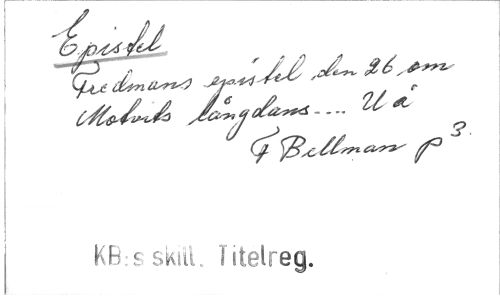 Epistel
Fredmans epistel den 26 om
Motvits långdans.... U å
F Bellman p 3.
KB:s skill. Titelreg.